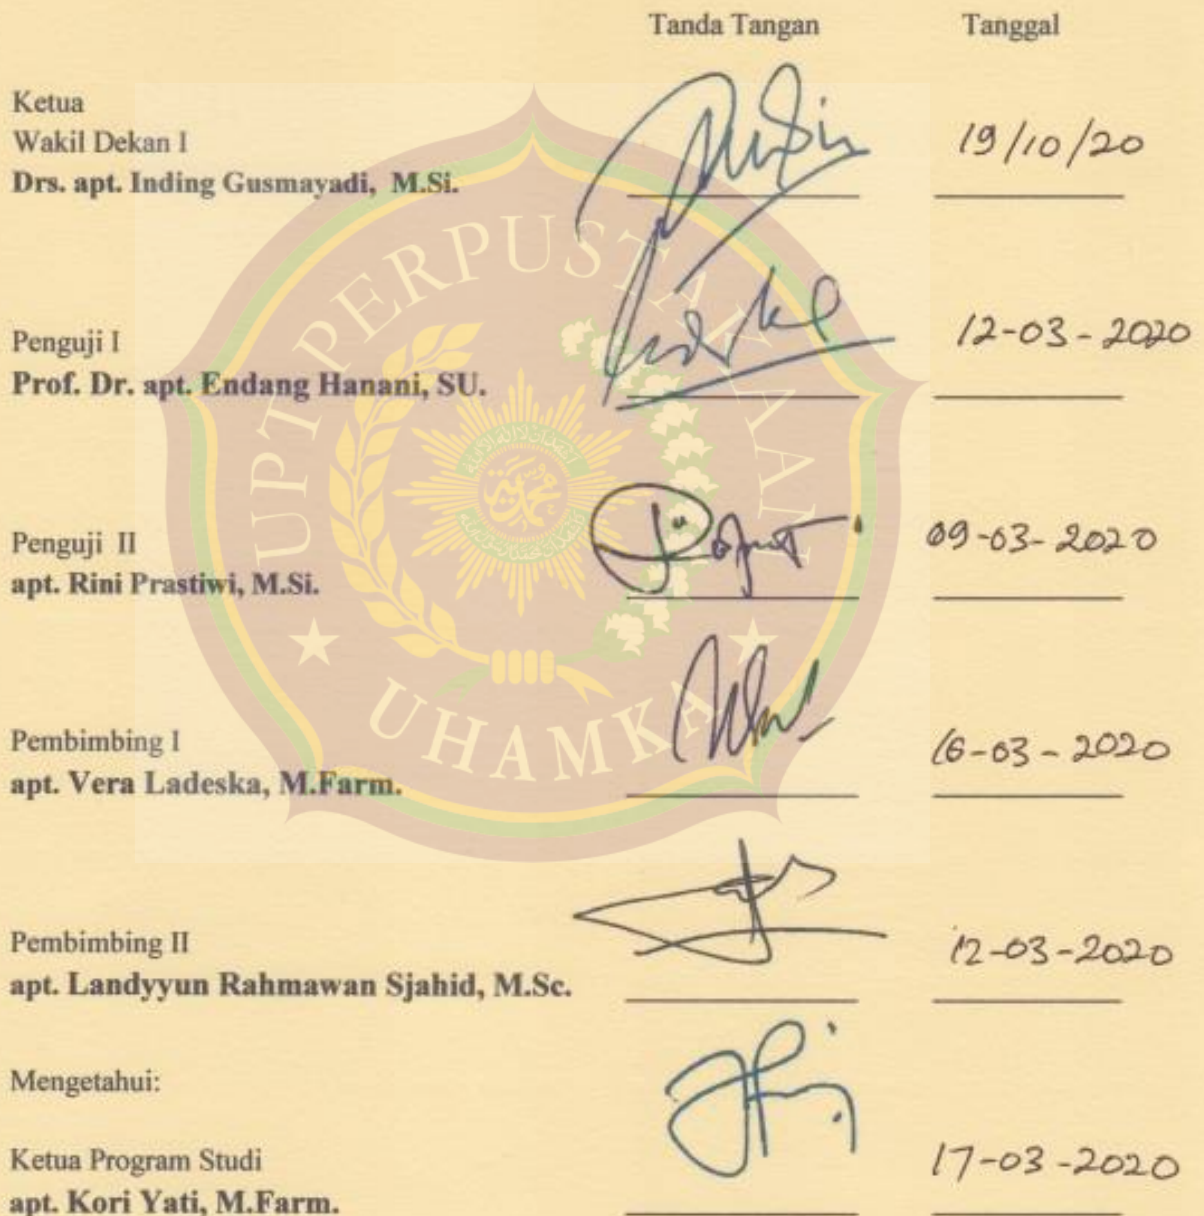 Tanda Tangan Tanggal
Ketua
Wakil Dekan I
Drs. apt. Inding Gusmayadi, M.Si. 19/10/20
Penguji I
Prof. Dr. apt. Endang Hanani, SU. 12-03-2020
Penguji II
apt. Rini Prastiwi, M.Si. 09-03-2020
Pembimbing I
apt. Vera Ladeska, M.Farm. 16-03-2020
Pembimbing II
apt. Landyyun Rahmawan Sjahid, M.Sc. 12-03-2020
Mengetahui:
Ketua Program Studi
apt. Kori Yati, M.Farm. 17-03-2020
UPT PERPUSTAKAAN
UHAMKA